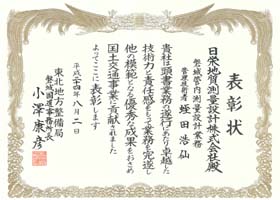 表彰状
日栄地質測量設計株式会社殿
磐城管内測量設計業務
管理技術者 蛭田浩仙
貴社は頭書業務の遂行にあたり卓越した
技術力と責任感をもって業務を完遂し
他の模範となる優秀な成果をおさめ
国土交通事業に貢献されました
よってここに表彰します
平成二十四年八月二日
東北地方整備局
磐城国道事務所長
小澤康彦